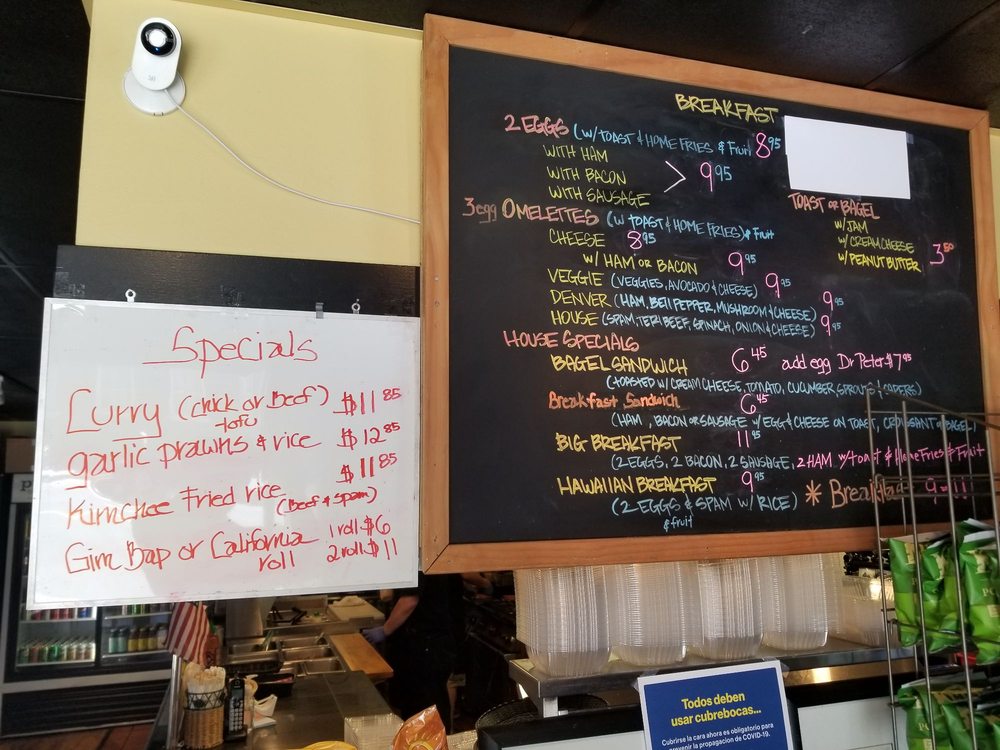 Specials
Curry (chick or Beef) $11 85
tofu
garlic prawns & rice $12 85
$11 85
Kimchee Fried rice
(Beef & Spam)
Gim Bap or California 1 roll $6
roll 2 roll $11
BREAKFAST
2 EGGS (W/ TOAST & HOME FRIES & Fruit 8 95
WITH HAM
WITH BACON > 9 95
WITH SAUSAGE
3 egg OMELETTES (W/ TOAST & HOME FRIES) & fruit
CHEESE 8 95
W/ HAM OR BACON 9 95
VEGGIE (VEGGIES, AVOCADO & CHEESE) 9 95
DENVER (HAM, BELL PEPPER, MUSHROOM & CHEESE) 9 95
HOUSE (SPAM, TERI BEEF, SPINACH, ONION & CHEESE) 9 95
TOAST OR BAGEL
W/ JAM
W/ CREAM CHEESE 3 50
W/ PEANUT BUTTER
HOUSE SPECIALS
BAGEL SANDWICH 6 45 add egg Dr Peter $7 95
(TOASTED W/ CREAM CHEESE, TOMATO, CUCUMBER, SPROUTS & CAPERS)
Breakfast Sandwich 6 45
(HAM, BACON OR SAUSAGE W/ EGG & CHEESE ON TOAST, CROISSANT OR BAGEL)
BIG BREAKFAST 11 95
(2 EGGS, 2 BACON, 2 SAUSAGE, 2 HAM W/ Toast & Home Fries & Fruit
HAWAIIAN BREAKFAST 9 95
(2 EGGS & SPAM W/ RICE)
& fruit
* Breakfast 9-11
Todos deben
usar cubrebocas...
Cubrirse la cara ahora es obligatorio para
prevenir la propagacion de COVID-19.